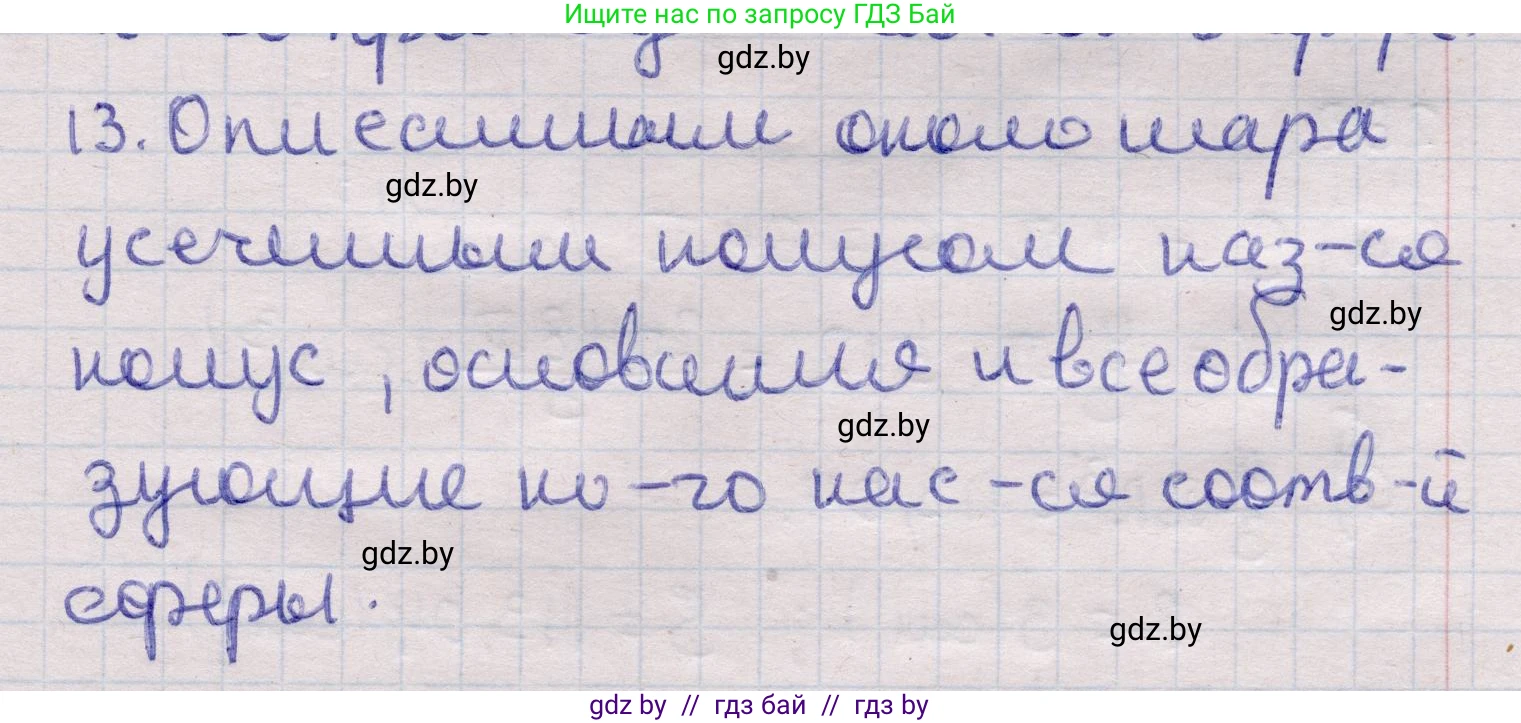 Ищите нас по запросу ГДЗ Бай
gdz.by
13. Описанным около шара
gdz.by
усечённым конусом наз-ся
gdz.by
конус, основания и все обра-
gdz.by
зующие ко-го кас-ся соотв-й
gdz.by
сферы.
gdz.by
gdz by // гдз бай // гдз by